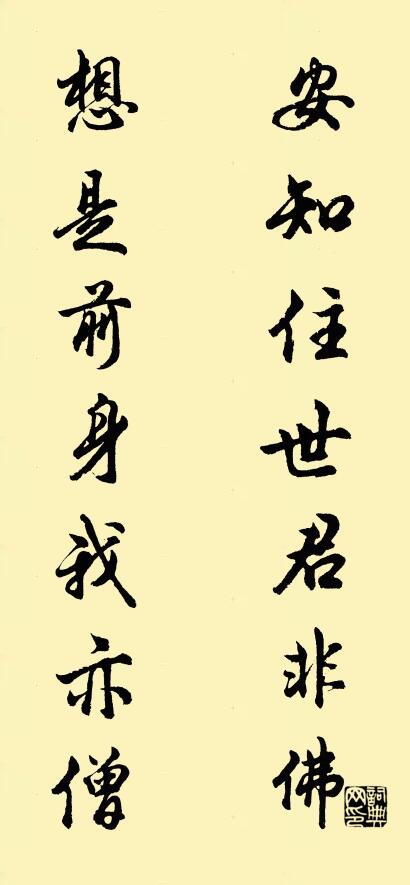 安知住世君非佛
想是前身我亦僧
詞典网印